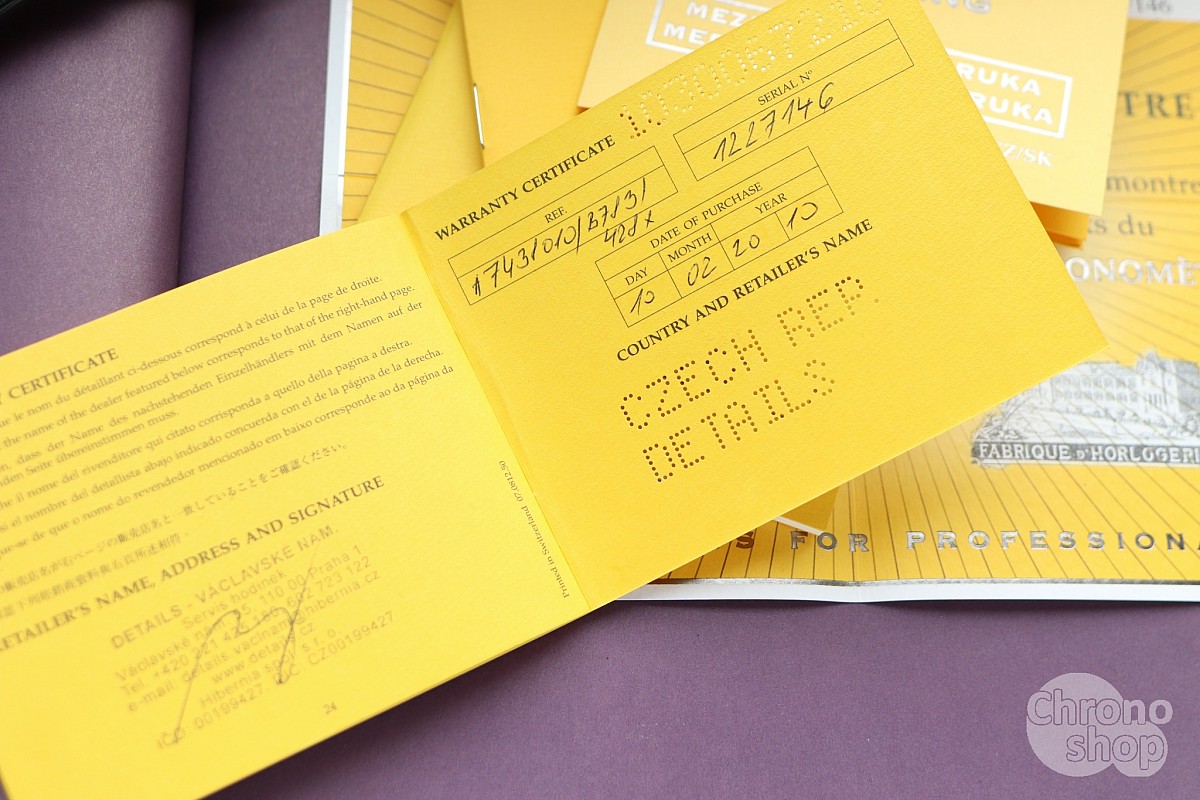 146
MEZ
NG
RUKA
RUKA
CZ/SK
TRE
montre
ks du
ONOMÈ
FABRIQUE D'HORLOGERI
S FOR PROFESSIONA
WARRANTY CERTIFICATE
REF.
SERIAL Nº
1227146
DATE OF PURCHASE
DAY MONTH YEAR
10 02 20 10
COUNTRY AND RETAILER'S NAME
CZECH REP.
DETAILS
CERTIFICATE
ue le nom du détaillant ci-dessous correspond à celui de la page de droite.
the name of the dealer featured below corresponds to that of the right-hand page.
en, dass der Name des nachstehenden Einzelhändlers mit dem Namen auf der
nden Seite übereinstimmen muss.
che il nome del rivenditore qui citato corrisponda a quello della pagina a destra.
si el nombre del detallista abajo indicado concuerda con el de la página de la derecha.
que-se de que o nome do revendedor mencionado em baixo corresponde ao da página da
の販売店名が右ページの販売店名と一致していることをご確認ください。
RETAILER'S NAME, ADDRESS AND SIGNATURE
DETAILS - VÁCLAVSKÉ NÁM.
Servis hodinek
Václavské 110 00 Praha 1
Tel. +420 221 602 723 122
e-mail: details.vaclnam@hibernia.cz
www.details.cz
Hibernia s.r.o.
IČO 00199427, DIČ CZ00199427
24
Printed in Switzerland 07.0812.50
Chrono
shop